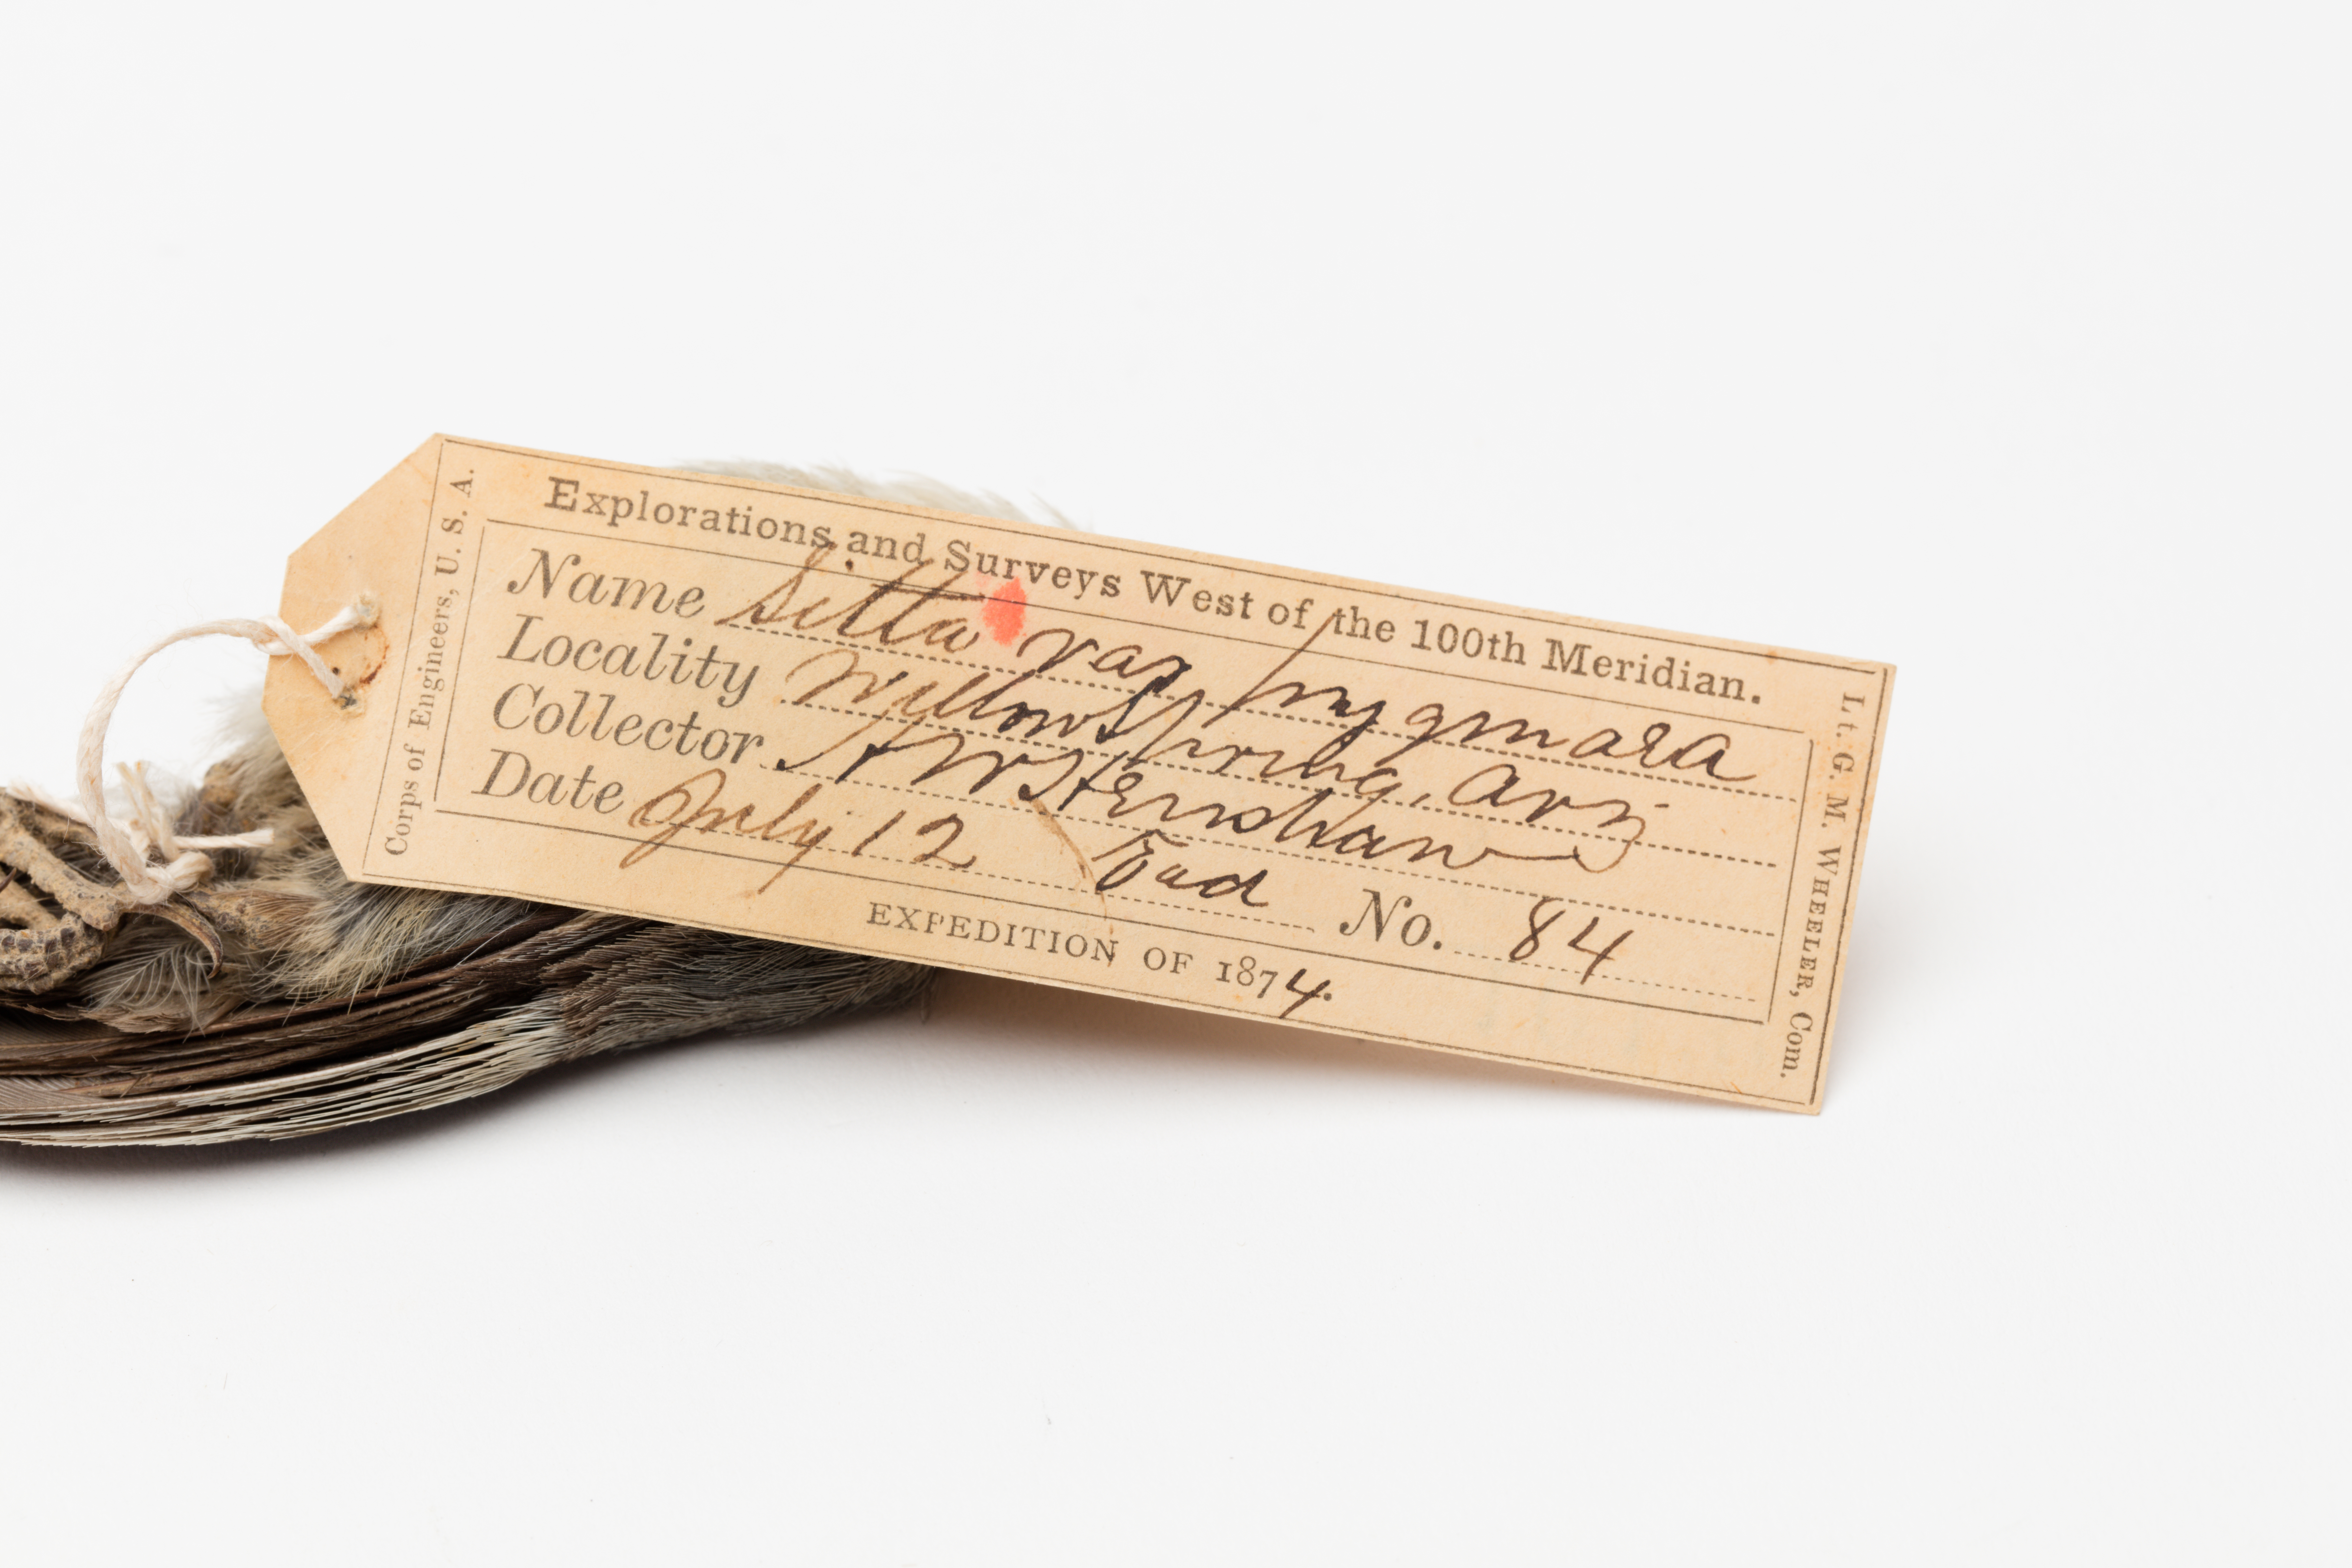 Explorations and Surveys West of the 100th Meridian.
Corps of Engineers, U. S. A.
Name Sitta var pygmaea
Locality Willow Spring, Ariz
Collector HW Henshaw
Date July 12 No. 84
EXPEDITION OF 1874.
Lt. G. M. WHEELER, Com.